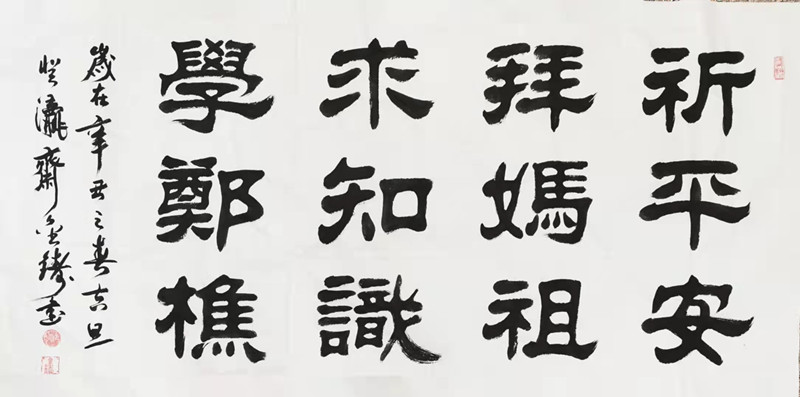 祈平安
拜媽祖
求知識
學鄭樵
歲在辛丑之春吉旦
瀛齋
書